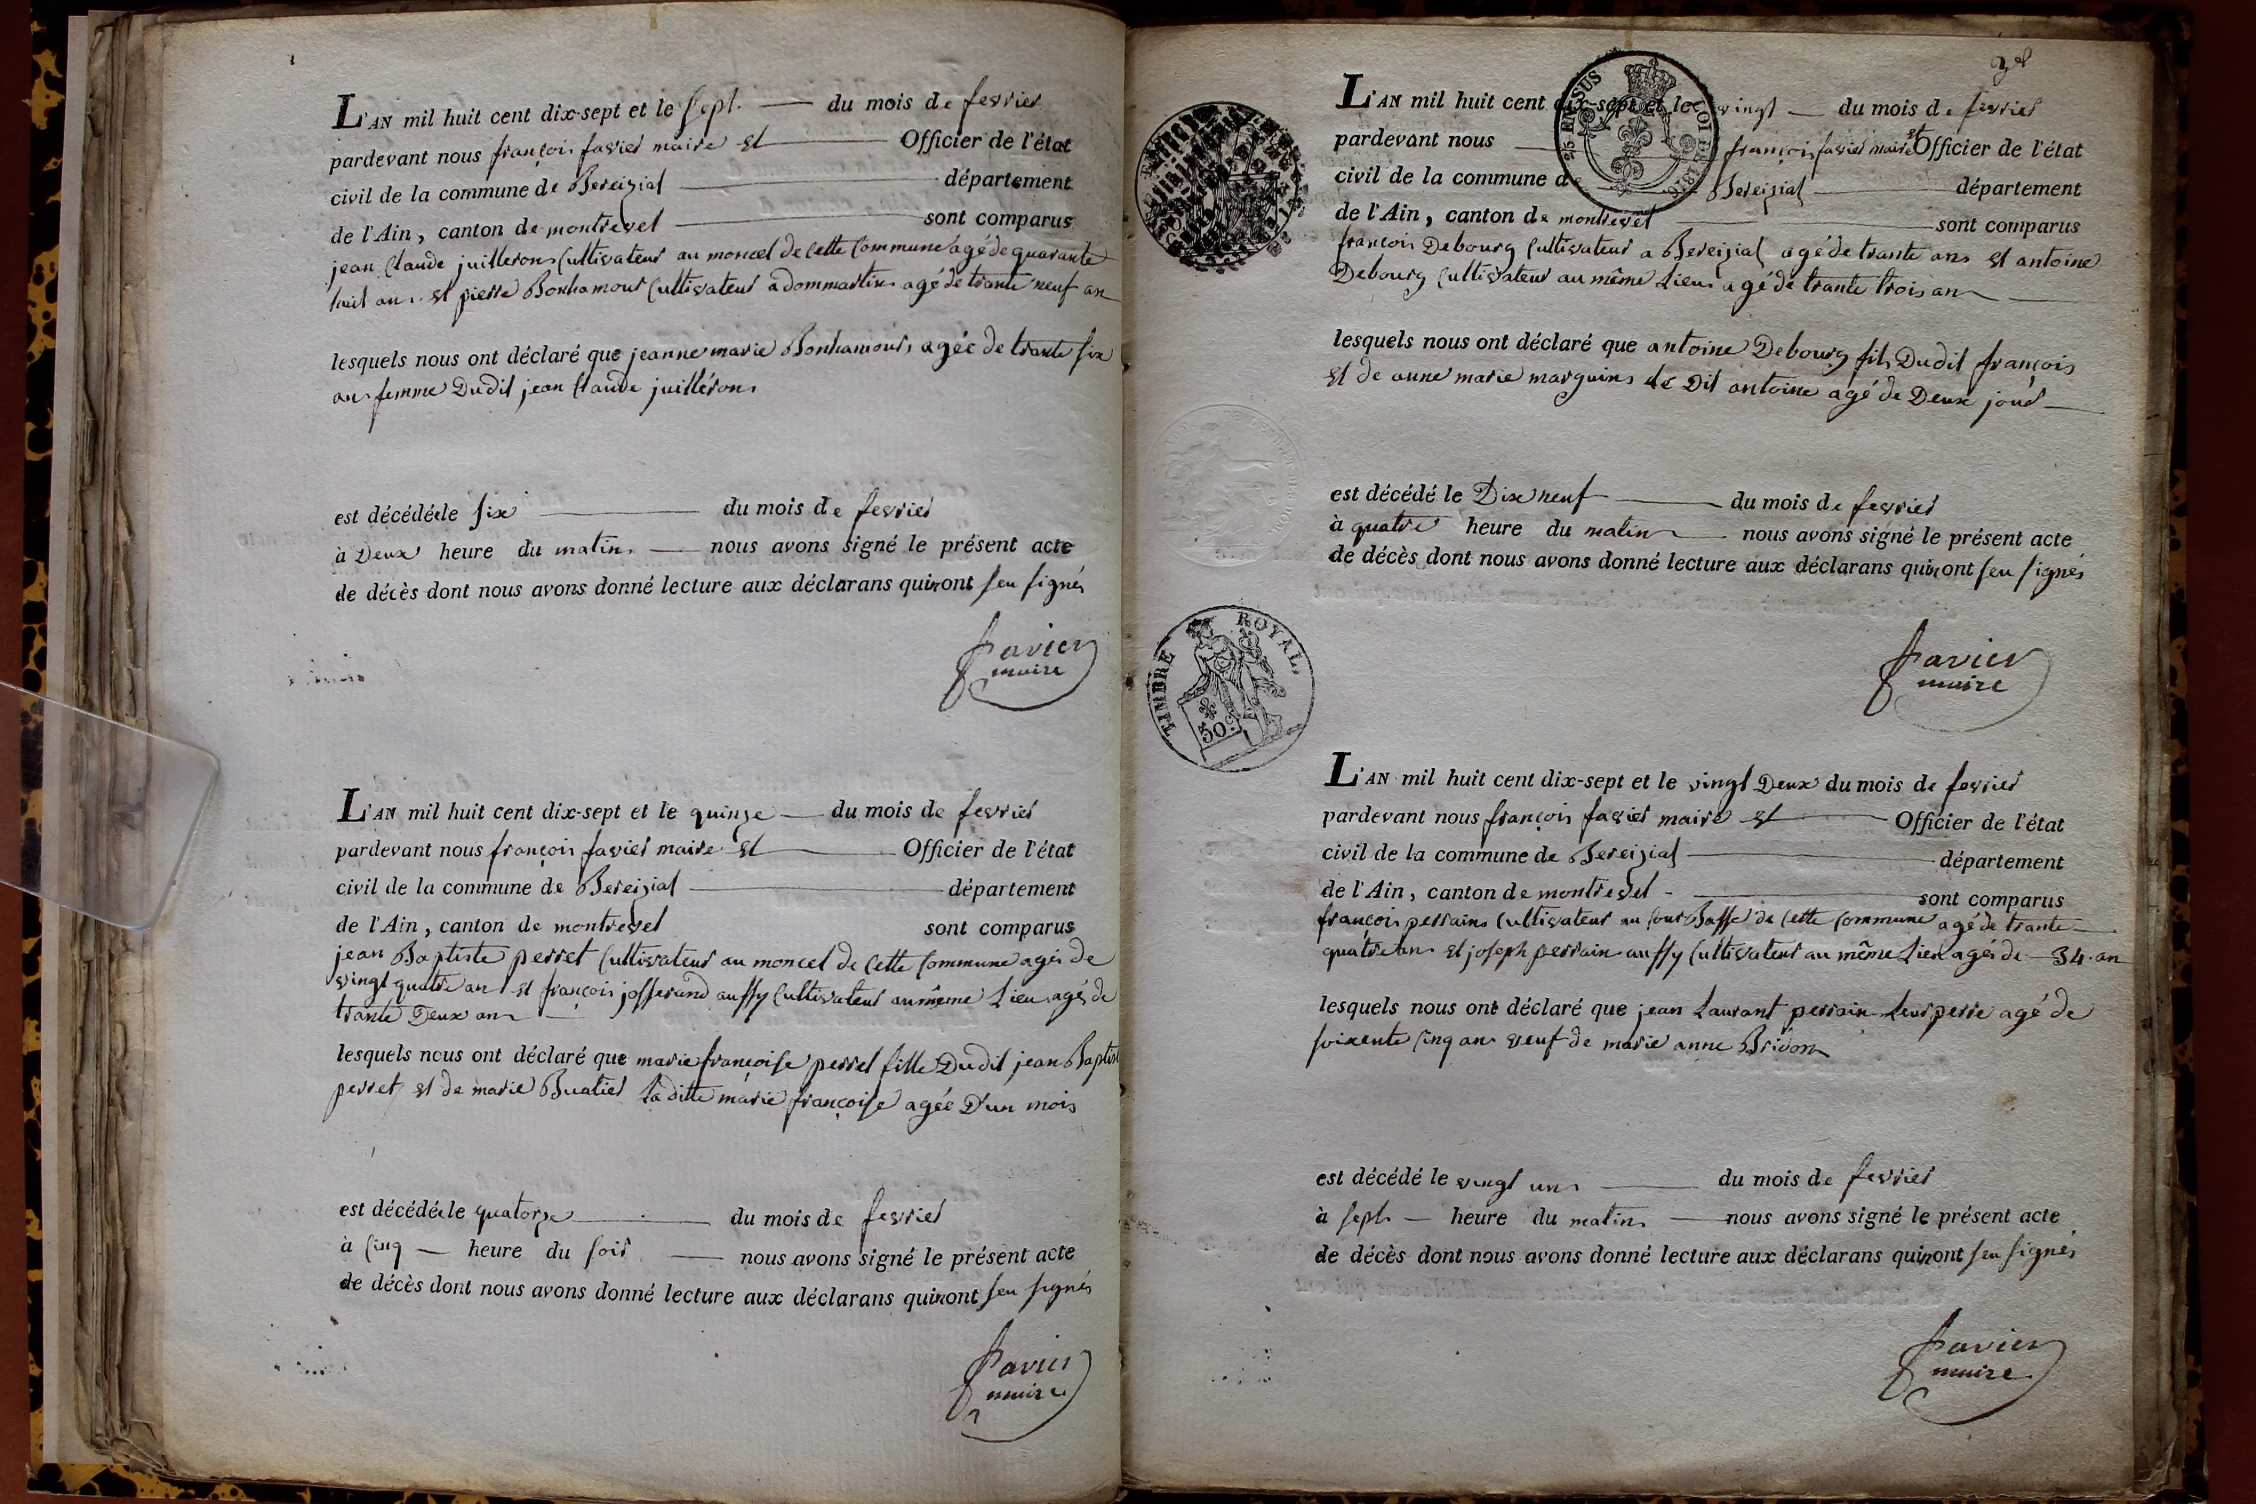 L'AN mil huit cent dix-sept et le sept — du mois de fevrier
pardevant nous françois favier maire et — Officier de l'état
civil de la commune de Bereizial — département
de l'Ain, canton de montrevel — sont comparus
jean Claude juilleron Cultivateur au moncel de Cette Commune agé de quarante
huit ans et pierre Bonhamour Cultivateur a dommartin agé de trante neuf an
lesquels nous ont déclaré que jeanne marie Bonhamour agée de trante six
ans femme Dudit jean Claude juilléron
est décédée le six — du mois de fevrier
à Deux heure du matin — nous avons signé le présent acte
de décès dont nous avons donné lecture aux déclarans qui n'ont seu signés
favier
maire
L'AN mil huit cent dix-sept et le quinze — du mois de fevrier
pardevant nous françois favier maire et — Officier de l'état
civil de la commune de Bereizial — département
de l'Ain, canton de montrevel sont comparus
jean Baptiste perret Cultivateur au moncel de Cette Commune agés de
vingt quatre an et françois josserand aussy Cultivateur au même Lieu agés de
trante Deux an —
lesquels nous ont déclaré que marie françoise perret fille Dudit jean Baptist
perret et de marie Buatier La ditte marie françoise agée D'un mois
est décédée le quatorze — du mois de fevrier
à Cinq — heure du soir — nous avons signé le présent acte
de décès dont nous avons donné lecture aux déclarans qui n'ont seu signés
favier
maire
L'AN mil huit cent dix-sept et le vingt — du mois de fevrier
pardevant nous — françois favier maire et Officier de l'état
civil de la commune de Bereizial — département
de l'Ain, canton de montrevel — sont comparus
françois Debourg Cultivateur a Bereizial agé de trante ans et antoine
Debourg Cultivateur au même Lieu agé de trante trois an —
lesquels nous ont déclaré que antoine Debourg fils Dudit françois
et de anne marie marguin le Dit antoine agé de Deux jour —
est décédé le Dix neuf — du mois de fevrier
à quatre heure du matin — nous avons signé le présent acte
de décès dont nous avons donné lecture aux déclarans qui n'ont seu signés
favier
maire
TIMBRE ROYAL
50 c
L'AN mil huit cent dix-sept et le vingt Deux du mois de fevrier
pardevant nous françois favier maire et — Officier de l'état
civil de la commune de Bereizial — département
de l'Ain, canton de montrevel — sont comparus
françois perrain Cultivateur au Cour Basse de Cette Commune agé de trante —
quatre an et joseph perrain aussy Cultivateur au même Lieu agés de — 34 an
lesquels nous ont déclaré que jean Laurant perrain Leur perre agé de
soixente Cinq an veuf de marie anne Bridon
est décédé le vingt un — du mois de fevrier
à sept — heure du matin — nous avons signé le présent acte
de décès dont nous avons donné lecture aux déclarans qui n'ont seu signés
favier
maire